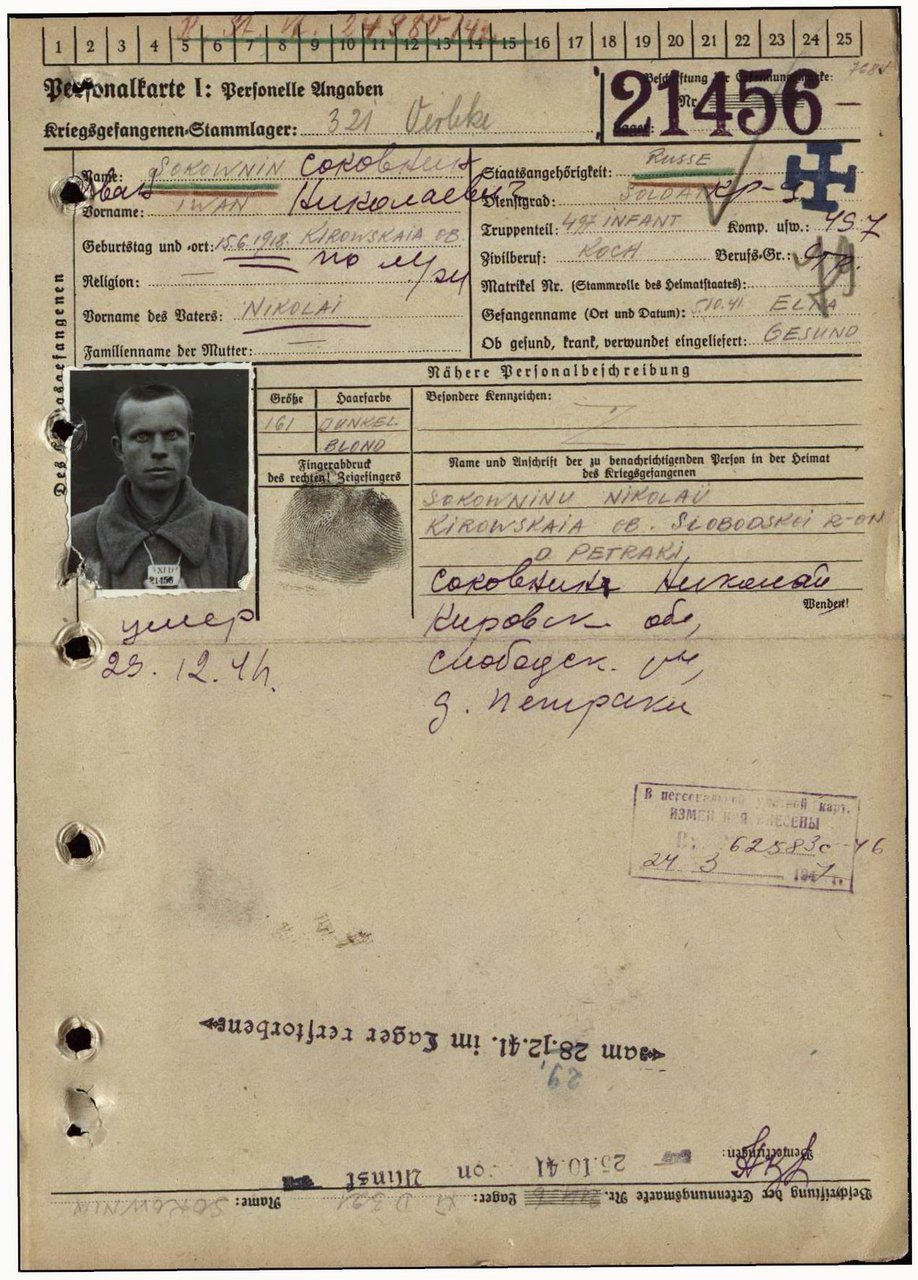 1 2 3 4 5 6 7 8 9 10 11 12 13 14 15 16 17 18 19 20 21 22 23 24 25
Personalkarte I: Personelle Angaben
Beschriftung der Erkennungsmarke:
Nr. 21456
Kriegsgefangenen-Stammlager: 321
Lager:
Des Kriegsgefangenen
Name: SOKOWNIN Соковнин
Иван Николаевич
Vorname: IWAN
Geburtstag und -ort: 15.6.1918. KIROWSKAIA OB
Religion: —
Vorname des Vaters: NIKOLAI
Familienname der Mutter: —
Staatsangehörigkeit: RUSSE
Dienstgrad: SOLDAT
Truppenteil: 497 INFANT Komp. usw.: 497
Zivilberuf: KOCH Berufs-Gr.:
Matrikel Nr. (Stammrolle des Heimatstaates):
Gefangenname (Ort und Datum): 5.10.41 ELNA
Ob gesund, krank, verwundet eingeliefert: GESUND
Nähere Personalbeschreibung
Größe Haarfarbe Besondere Kennzeichen:
161 DUNKEL
BLOND
Fingerabdruck
des rechten! Zeigefingers
XI D
21456
Name und Anschrift der zu benachrichtigenden Person in der Heimat
des Kriegsgefangenen
SOKOWNINU NIKOLAÜ
KIROWSKAIA OB. SLOBODSKOI R-ON
D PETRAKI
Соковнину Николай
Wenden!
Кировск. обл,
Слободск. рн,
д. Петраки
умер
29.12.41г.
В персональной учетной карт.
ИЗМЕНЕНИЯ ВНЕСЕНЫ
62583с-46
24 3 1947 г.
am 28.12.41. im Lager verstorben
29,
Bemerkungen:
25.10.41 von Minsk
Beschriftung der Erkennungsmarke Nr. Lager: XI D 321 Name: SOKOWNIN